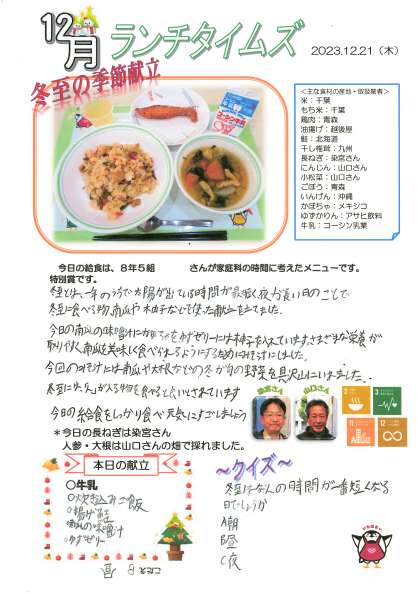 12月 ランチタイムズ
2023.12.21（木）
冬至の季節献立
＜主な食材の産地・取扱業者＞
米：千葉
もち米：千葉
鶏肉：青森
油揚げ：越後屋
鮭：北海道
干し椎茸：九州
長ねぎ：染宮さん
にんじん：山口さん
小松菜：山口さん
ごぼう：青森
いんげん：沖縄
かぼちゃ：メキシコ
ゆずかりん：アサヒ飲料
牛乳：コーシン乳業
今日の給食は、８年５組 さんが家庭科の時間に考えたメニューです。
特別賞です。
冬至とは、一年のうちで太陽が出ている時間が最も短く夜が長い日のことで
冬至に食べる物、南瓜や柚子などを使った献立を立てました。
今日の南瓜の味噌汁には ゼリーには柚子を入れています。さまざまな栄養が
取りやすく南瓜を美味しく食べられるようにするためにみそ汁にしました。
今回のみそ汁には南瓜や大根などの冬が旬の野菜を具沢山にいました。
冬至に"ん"が入る物を食べると良いとされています
今日の給食をしっかり食べ元気にすごしましょう
染宮さん 山口さん
＊今日の長ねぎは染宮さん
人参・大根は山口さんの畑で採れました。
本日の献立
○牛乳
○炊き込みご飯
○揚げ鮭
○南瓜の味噌汁
○ゆずゼリー
～クイズ～
冬至はなんの時間が一番短くなる
日でしょうか
A朝
B昼
C夜